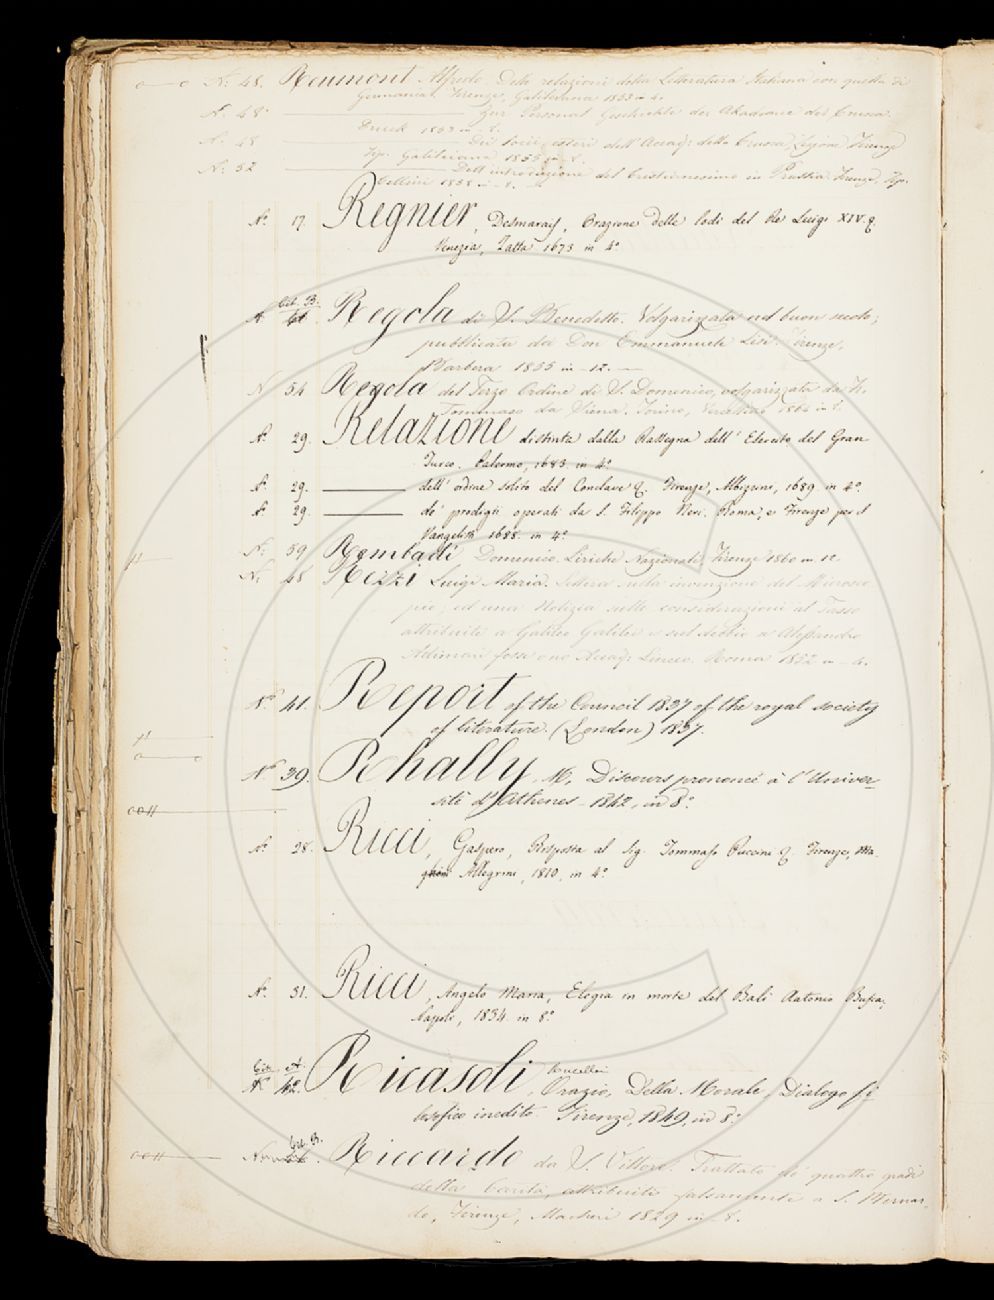 N.° 48. Reumont Alfredo. Delle relazioni della Letteratura Italiana con quella di
Germania. Firenze, Galileiana 1853 in 4.
N. 48 Zur Personal Geschichte der Akademie der Crusca.
Druck 1853 in - 8.
N. 48 Dei Socii esteri dell'Accad: della Crusca, Firenze
Tip. Galileiana 1855 in - 8.
N. 52 Dell'introduzione del Cristianesimo in Prussia. Firenze, Tip.
Cellini 1858 in - 8.
N.° 17. Regnier, Desmarais, Orazione delle lodi del Re Luigi XIV. &.
Venezia, Zatta 1673 in 4.°
Cit. B.
N. Regola di S. Benedetto. Volgarizzata nel buon secolo;
pubblicata da Don Emmanuele Lisi. Firenze,
Barbera 1855 in - 12.
N. 54 Regola del Terzo Ordine di S. Domenico, volgarizzata da Fr.
Tommaso da Siena. Torino, 1864 in 8.
N.° 29. Relazione distinta della Rassegna dell'Esercito del Gran
Turco. Palermo, 1683. in 4.°
N.° 29. dell'ordine solito del Conclave &. Firenze, Albizzini, 1689. in 4.°
N.° 29. de' prodigii operati da S. Filippo Neri. Roma, e Firenze per il
Vangelisti 1688. in 4.°
N.° 59 Rembadi Domenico. Liriche Nazionali. Firenze 1860 in 12.
N. 48 Rezzi Luigi Maria. Lettera sulla invenzione del Microsco-
pio, ed una Notizia sulle considerazioni al Tasso
attribuite a Galileo Galilei e sul dubbio se Alessandro
Adimari fosse o no Accad: Linceo. Roma 1852 in - 4.
N.° 41. Report of the Council 1837 of the royal society
of literature. (London) 1837.
N.° 39. Rhally, M, Discours prononcé à l'Univer-
sitè d'Athenes - 1842, in 8.°
N.° 28. Ricci, Gaspero, Risposta al Sig. Tommaso Puccini &. Firenze, Ma-
gheri Allegrini, 1810, in 4.°
N.° 31. Ricci, Angelo Maria, Elegia in morte del Balì Antonio
Napoli, 1834. in 8.°
Cit. A. Rucellai
N.° Ricasoli, Orazio, Della Morale, Dialogo fi-
losofico inedito. Firenze, 1849, in 8.°
Cit. B.
Riccardo da S. Vittore. Trattato de' quattro gradi
della Carità, attribuito falsamente a S. Bernar-
do, Firenze, Magheri 1829 in - 8.